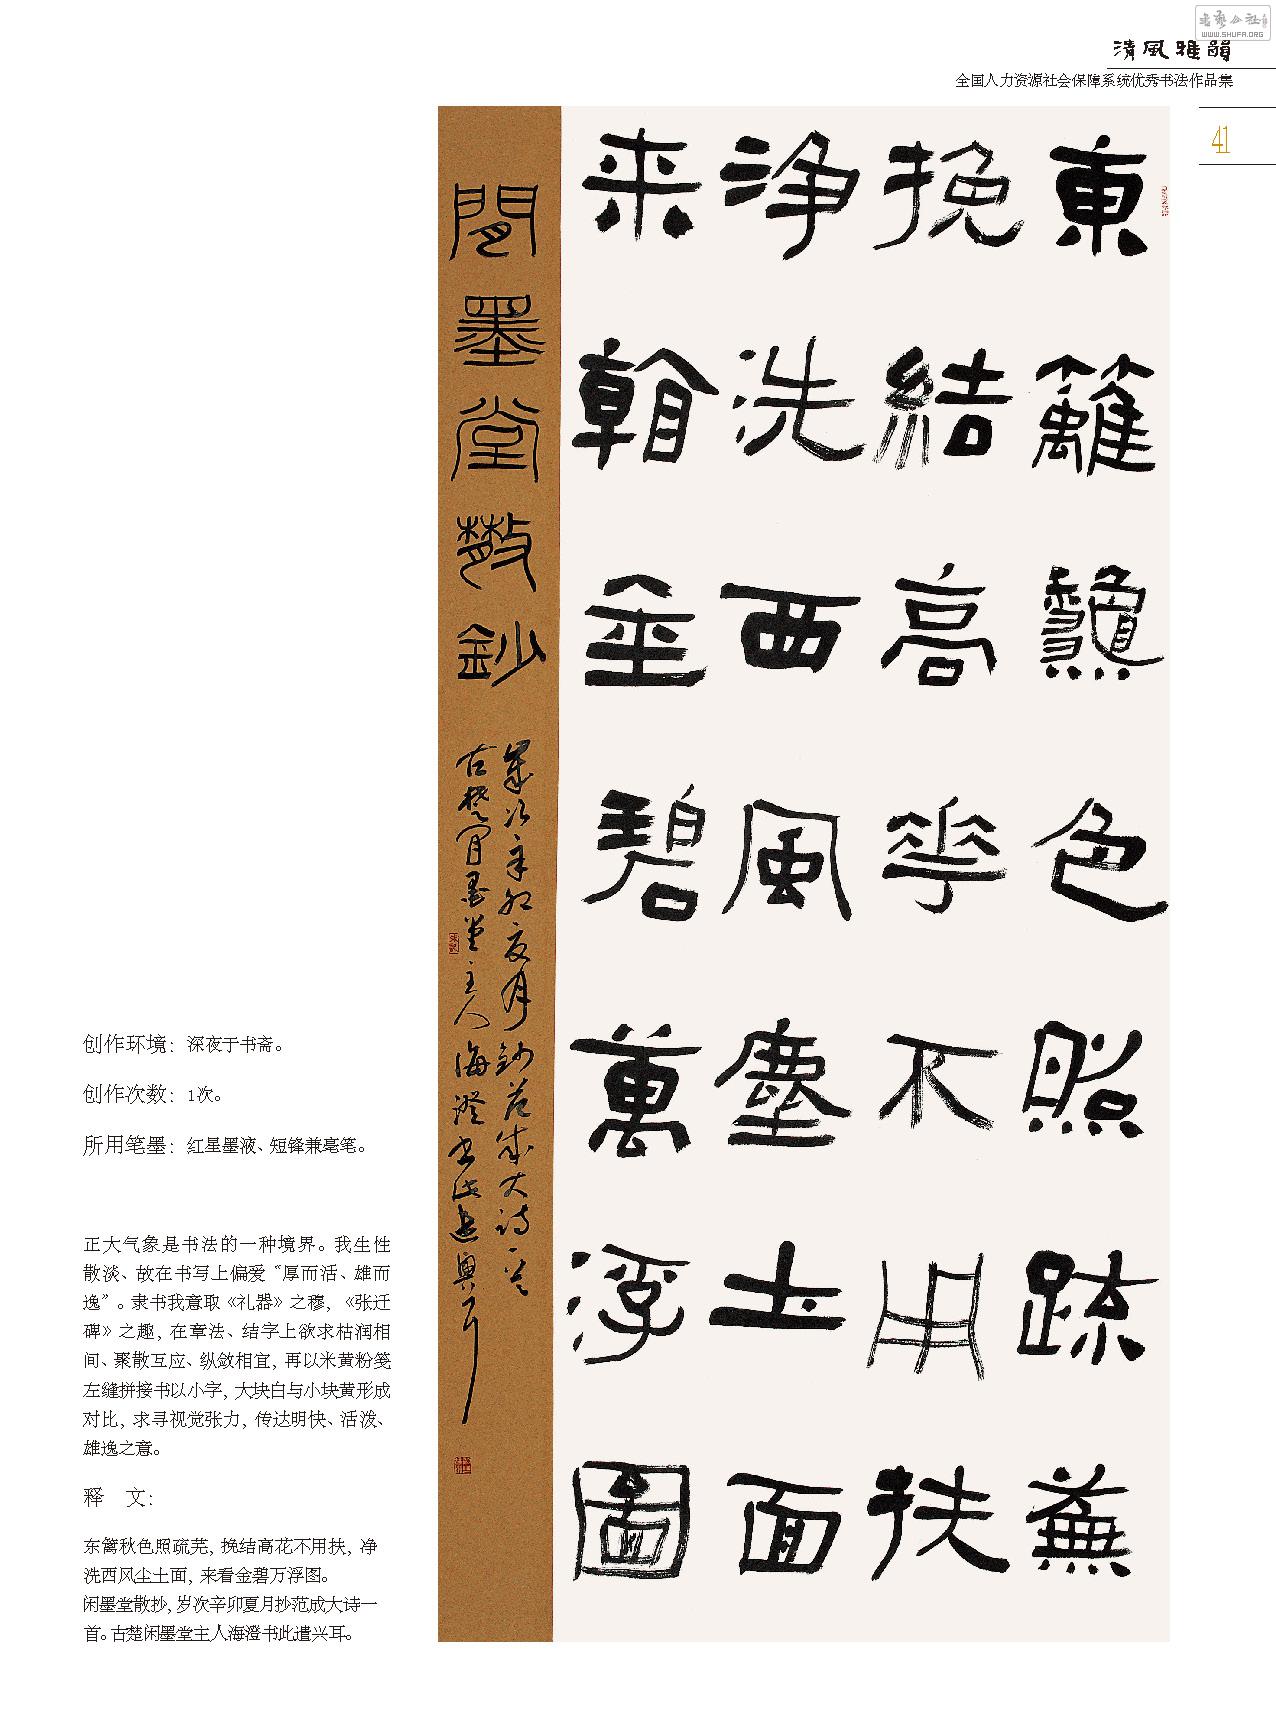 书艺公社
WWW.SHUFA.ORG
清風雅韻
全国人力资源社会保障系统优秀书法作品集
41
東籬龝色照疏蕪
挽結高花不用扶
净洗西風塵土面
来翰金碧萬浮圖
閒墨堂散鈔
歳次辛卯夏月鈔范成大诗一首
古楚闲墨堂主人海澄书此遣興耳
创作环境：深夜于书斋。
创作次数：1次。
所用笔墨：红星墨液、短锋兼毫笔。
正大气象是书法的一种境界。我生性
散淡、故在书写上偏爱“厚而活、雄而
逸”。隶书我意取《礼器》之穆，《张迁
碑》之趣，在章法、结字上欲求枯润相
间、聚散互应、纵敛相宜，再以米黄粉笺
左缝拼接书以小字，大块白与小块黄形成
对比，求寻视觉张力，传达明快、活泼、
雄逸之意。
释 文：
东篱秋色照疏芜，挽结高花不用扶，净
洗西风尘土面，来看金碧万浮图。
闲墨堂散抄，岁次辛卯夏月抄范成大诗一
首。古楚闲墨堂主人海澄书此遣兴耳。